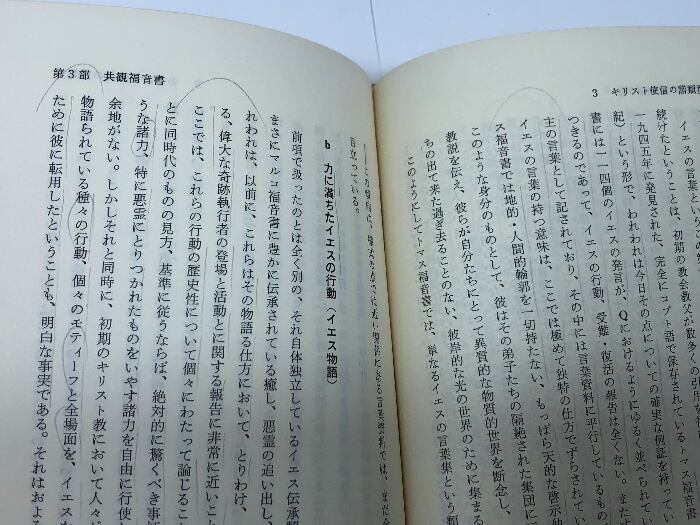 3 キリスト使信の諸類型
イエスの言葉と
続けたということは、初期の教会教父が多
一九四五年に発見された、完全にコプト語で保存されているトマス福音書
紀)という形で、われわれは今日その点についての確実な例証を持ってい
書には一一四個のイエスの発言が、Qにおけるようにゆるく並べられて
つきるのであって、イエスの行動、受難、復活の報告は全くない。また
主の言葉として記されており、その中には言葉資料に平行しているもの
イエスの言葉の持つ意味は、ここでは極めて独特の仕方でずらされてい
ス福音書では地的・人間的輪郭を一切持たない、もっぱら天的な啓示
このような身分のものとして、彼はその弟子たちの隔絶された集団に
教説を伝え、彼らが自分たちにとって異質的な物質的世界を断念し、
ちの出て来た過ぎ去ることのない、彼岸的な光の世界のために集まる
このようにしてトマス福音書では、単なるイエスの言葉集という類
第3部 共観福音書
目立っている。
b 力に満ちたイエスの行動(イエス物語)
前項で扱ったのとは全く別の、それ自体独立しているイエス伝承類
まさにマルコ福音書に豊かに伝承されている癒し、悪霊の追い出し、
れわれは、以前に、これらはその物語る仕方において、とりわけ、
る、偉大な奇跡執行者の登場と活動とに関する報告に非常に近いこと
ここでは、これらの行動の歴史性について個々にわたって論じるこ
とに同時代のものの見方、基準に従うならば、絶対的に驚くべき事柄
うな諸力、特に悪霊にとりつかれたものをいやす諸力を自由に行使
余地がない。しかしそれと同時に、初期のキリスト教において人々が
物語られている種々の行動、個々のモティーフと全場面を、イエス
ために彼に転用したということも、明白な事実である。それはおよ